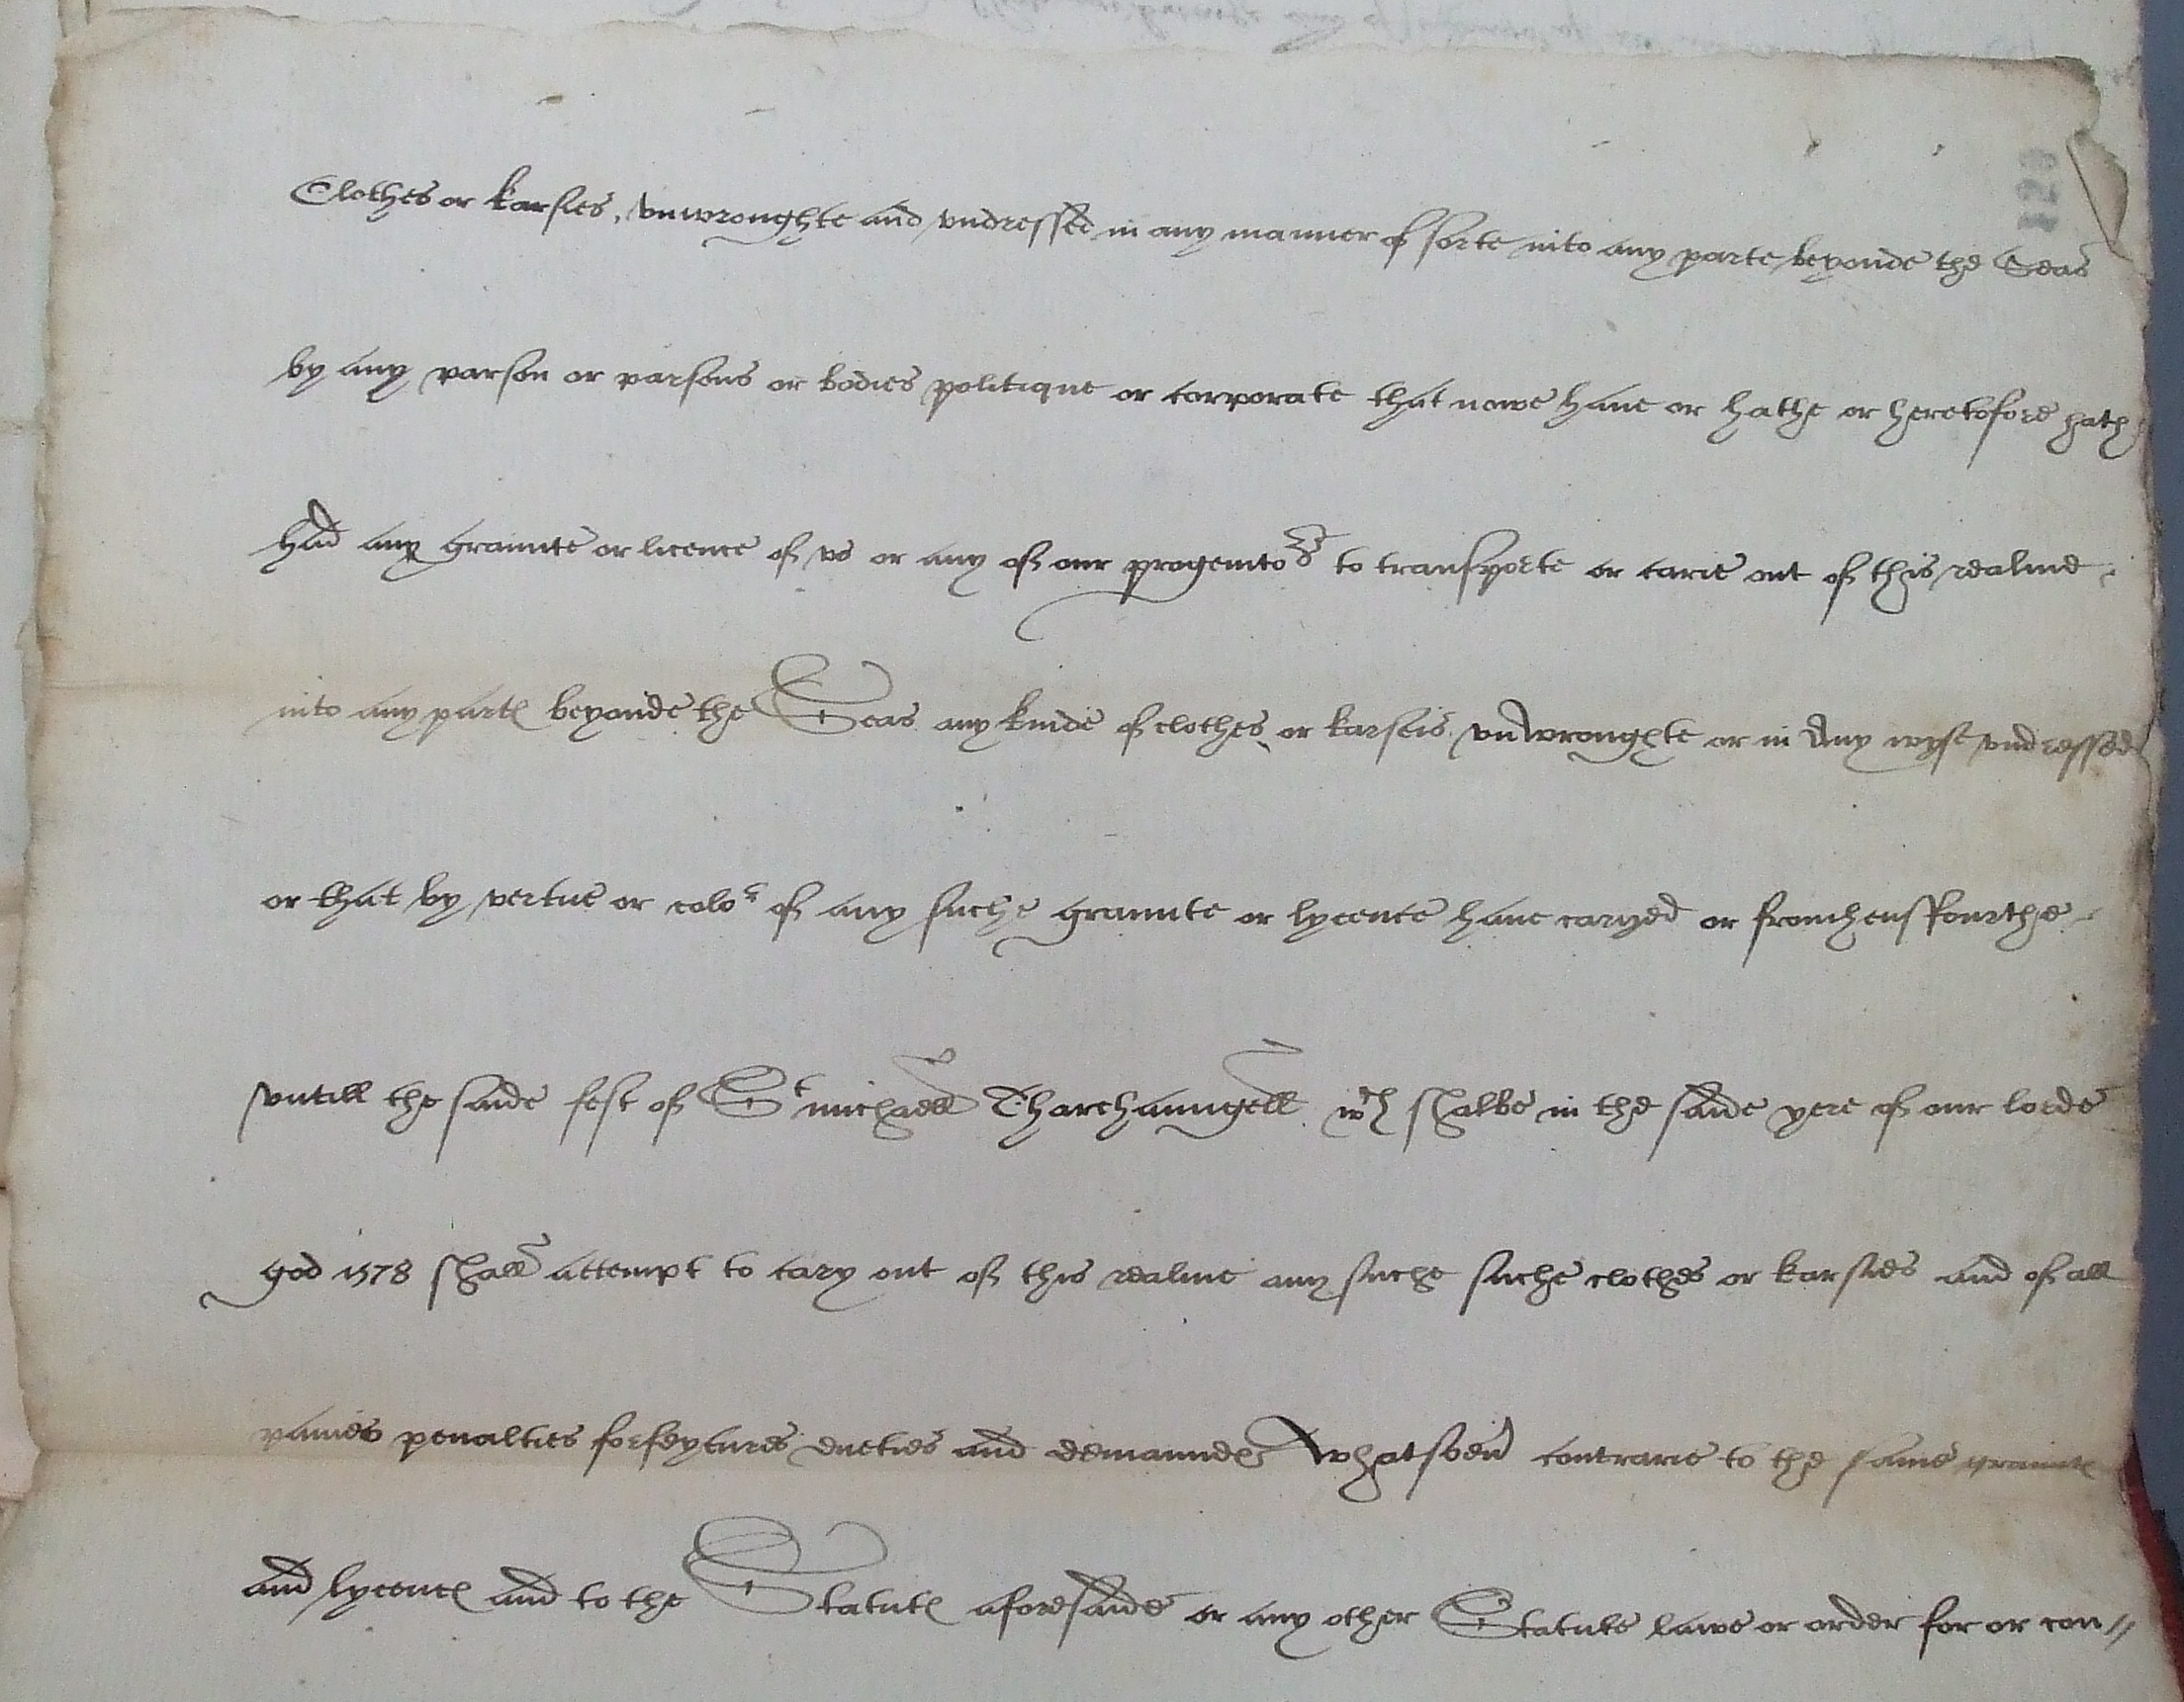 129
Clothes or karsies, vnwroughte and vndressed in any manner of sorte into any parte beyonde the Seas
by any parson or parsons or bodies politique or corporate that nowe haue or hathe or heretofore hath
had any graunte or licence of vs or any of our progenitors to transporte or carie out of this realme
into any partes beyonde the Seas any kinde of clothes or karseis vnwroughte or in any wyse vndressed
or that by vertue or color of any suche graunte or lycence haue caryed or fromhensfourthe
vntill the saide fest of St michaell Tharchaungell wch shalbe in the saide yere of our lorde
god 1578 shall attempt to cary out of this realme any suche suche clothes or karsies and of all
paines penalties forfeytures dueties and demaundes whatsoeuer contrarie to the same graunte
and lycence and to the Statutes aforesaide or any other Statute lawe or order for or con//